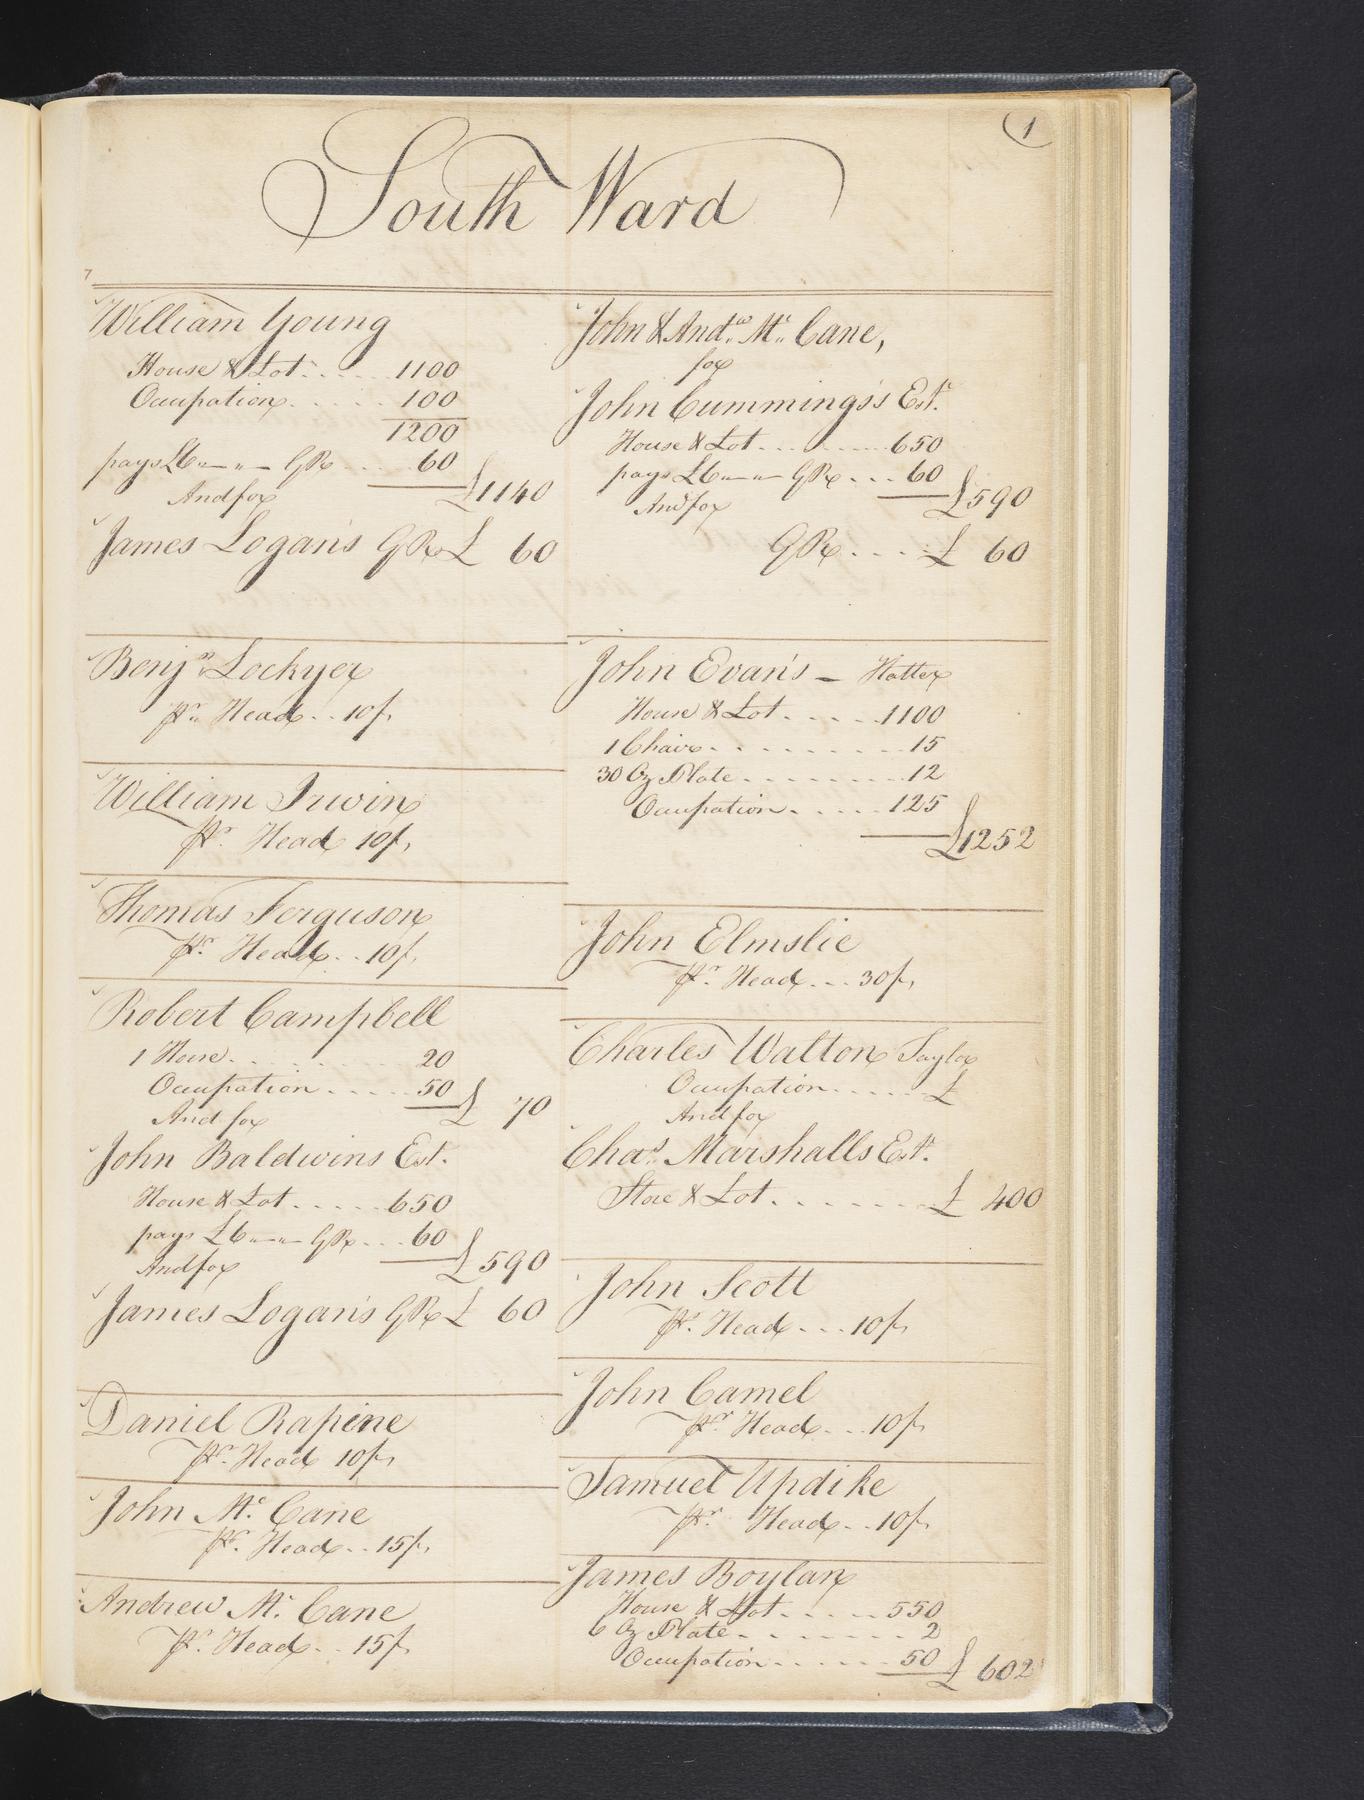 1
South Ward
7
William Young
House & Lot 1100
Occupation 100
1200
pays £6 " - " - GRt 60
And for £1140
James Logan's GRt £ 60
Benjn Lockyer
Pr. Head 10/.
William Irwin
Pr. Head 10/.
Thomas Ferguson
Pr. Head 10/.
Robert Campbell
1 Horse 20
Occupation 50
And for £ 70
John Baldwins Est.
House & Lot 650
pays £6 " - " - GRt 60
And for £590
James Logan's GRt £ 60
Daniel Rapine
Pr. Head 10/.
John Mc. Cane
Pr. Head 15/.
Andrew Mc. Cane
Pr. Head 15/.
John & Andw. Mc. Cane,
for
John Cummings's Est.
House & Lot 650
pays £6 " - " - GRt 60
And for £590
GRt £ 60
John Evan's - Hatter
House & Lot 1100
1 Chair 15
30 Oz Plate 12
Occupation 125
£1252
John Elmslie
Pr. Head 30/.
Charles Walton Taylor
Occupation £
And for
Chas. Marshalls Est.
Store & Lot £ 400
John Scott
Pr. Head 10/.
John Camel
Pr. Head 10/.
Samuel Updike
Pr. Head 10/.
James Boylan
House & Lot 550
6 Oz Plate 2
Occupation 50
£ 602